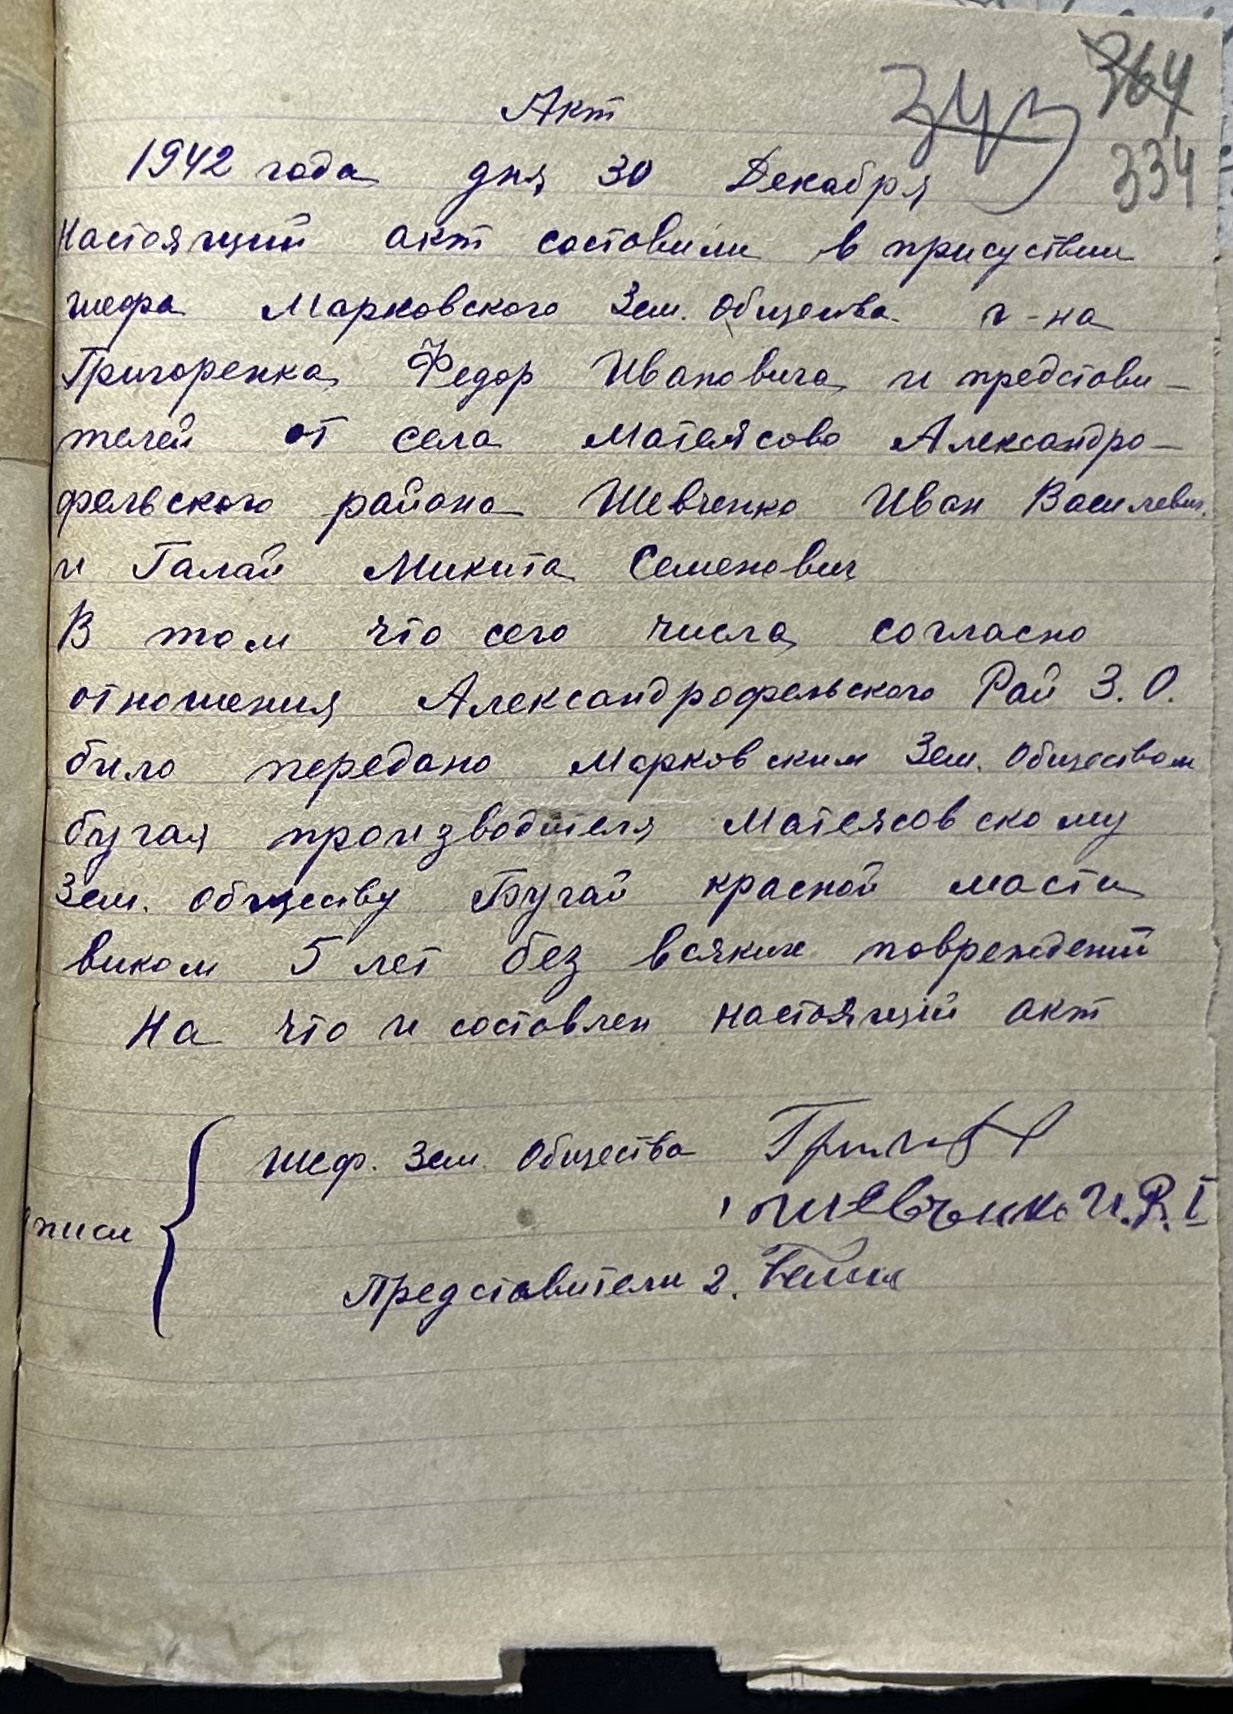 364
343
334
Акт
1942 года дня 30 Декабря
Настоящий акт составили в присуствии
шефа Марковского Зем. Общества г-на
Григоренка Федор Ивановича и представи-
телей от села Матеясово Александро-
фельвского района Шевченко Иван Василевич.
и Галай Микита Семенович
В том что сего числа согласно
отношения Александрофельвского Рай З.О.
било передано Марковским Зем. Обществом
бугая производителя Матеясовскому
Зем. Обществу Бугай красной масти
виком 5 лет без всяких повреждений
На что и составлен настоящий акт
Шеф. Зем. Общества
Шевченко И.В. 1
писи
Представители 2.